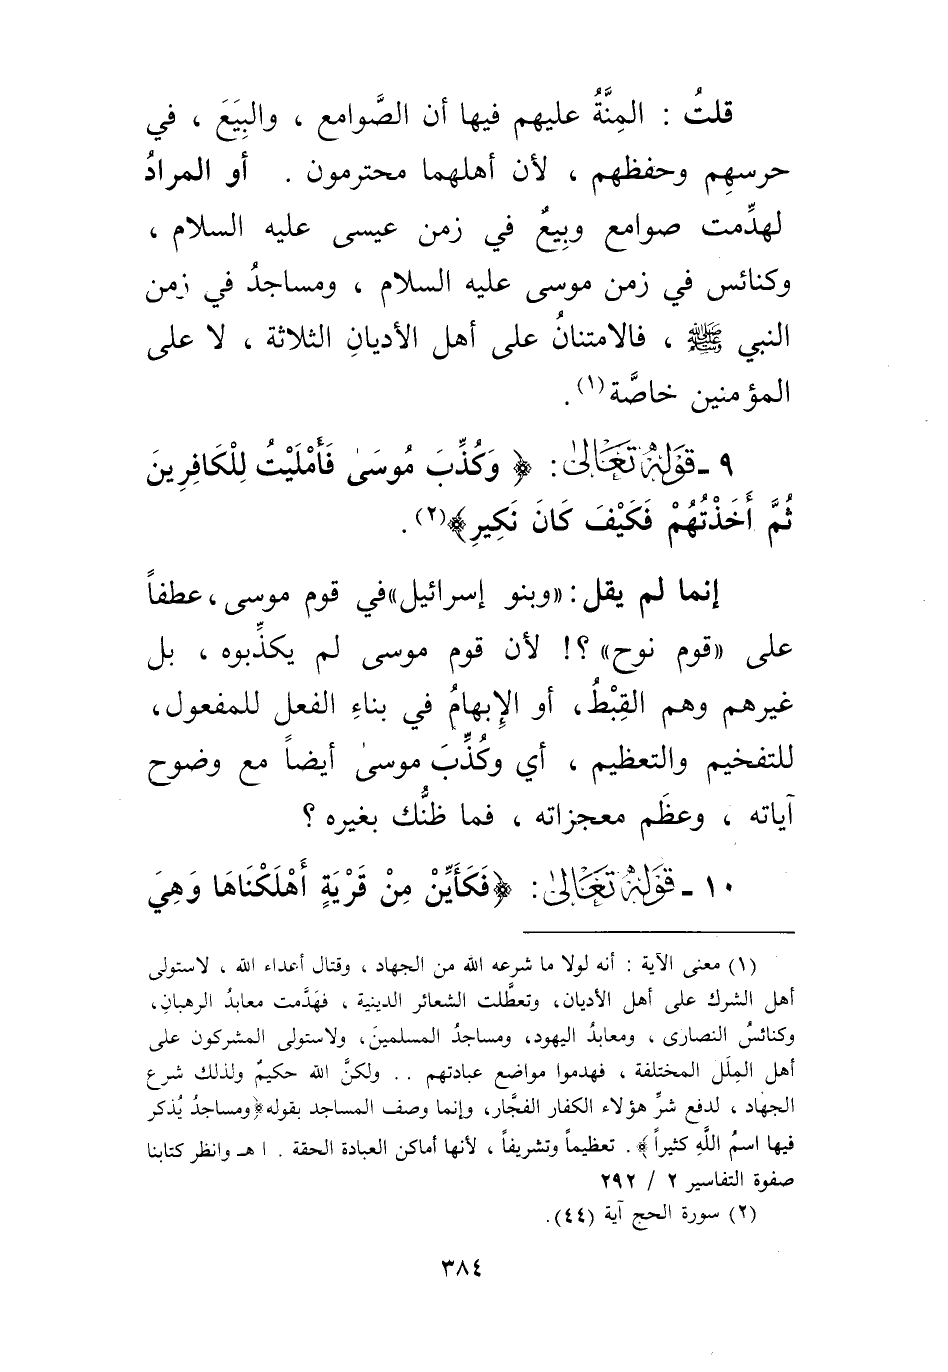 قلتُ : المِنَّةُ عليهم فيها أن الصَّوامع ، والبِيَعَ ، في
حرسهم وحفظهم ، لأن أهلهما محترمون . أو المرادُ
لهدِّمت صوامع وبِيعٌ في زمن عيسى عليه السلام ،
وكنائس في زمن موسى عليه السلام ، ومساجدُ في زمن
النبي ﷺ ، فالامتنانُ على أهل الأديانِ الثلاثة ، لا على
المؤمنين خاصَّة(١) .
٩ ـ قَوْلُهُ تَعَالَىٰ : ﴿ وَكُذِّبَ مُوسَىٰ فَأَمْلَيْتُ لِلْكَافِرِينَ
ثُمَّ أَخَذْتُهُمْ فَكَيْفَ كَانَ نَكِيرِ﴾(٢) .
إنما لم يقل : «وبنو إسرائيل» في قوم موسى ، عطفاً
على «قوم نوح» ؟! لأن قوم موسى لم يكذِّبوه ، بل
غيرهم وهم القِبْطُ ، أو الإِبهامُ في بناءِ الفعل للمفعول ،
للتفخيم والتعظيم ، أي وكُذِّبَ موسىٰ أيضاً مع وضوح
آياته ، وعظَم معجزاته ، فما ظنُّك بغيره ؟
١٠ ـ قَوْلُهُ تَعَالَىٰ : ﴿فَكَأَيِّنْ مِنْ قَرْيَةٍ أَهْلَكْنَاهَا وَهِيَ
(١) معنى الآية : أنه لولا ما شرعه الله من الجهاد ، وقتال أعداء الله ، لاستولى
أهل الشرك على أهل الأديان ، وتعطَّلت الشعائر الدينية ، فهَدَّمت معابدُ الرهبانِ ،
وكنائسُ النصارى ، ومعابدُ اليهود ، ومساجدُ المسلمينَ ، ولاستولى المشركون على
أهل المِلَل المختلفة ، فهدموا مواضع عبادتهم . . ولكنَّ الله حكيمٌ ولذلك شرع
الجهاد ، لدفع شرِّ هؤلاء الكفار الفجَّار ، وإنما وصف المساجد بقوله ﴿ومساجدُ يُذكر
فيها اسمُ اللَّهِ كثيراً ﴾ . تعظيماً وتشريفاً ، لأنها أماكن العبادة الحقة . ا هـ وانظر كتابنا
صفوة التفاسير ٢ / ٢٩٢
(٢) سورة الحج آية (٤٤) .
٣٨٤